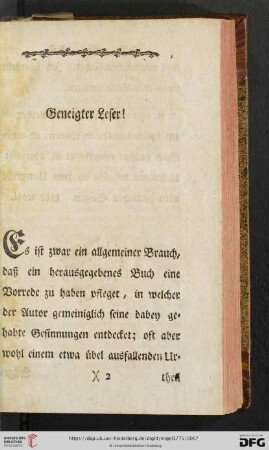 Geneigter Leser!
Es ist zwar ein allgemeiner Brauch,
daß ein herausgegebenes Buch eine
Vorrede zu haben pfleget, in welcher
der Autor gemeiniglich seine dabey ge-
habte Gesinnungen entdecket; oft aber
wohl einem etwa übel ausfallenden Ur-
X 2
theil
UNIVERSITÄTS-
BIBLIOTHEK
HEIDELBERG
© Universitätsbibliothek Heidelberg
gefördert durch die
DFG